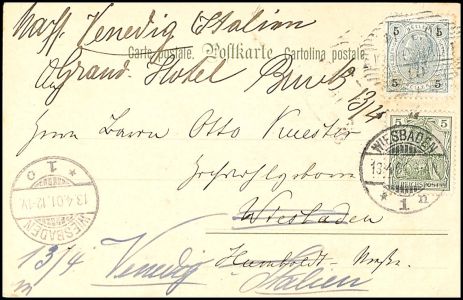 Nach Venedig Italien
Carte postale. Postkarte Cartolina postale.
Grand Hotel
13/4
Herrn Baron Otto Kuester
Hochwohlgeboren
Wiesbaden
Humboldt-Straße.
13/4 Venedig Italien
5 5
5 5
5 5
REICHSPOST
WIESBADEN
13.4.01
* 1 n
WIESBADEN
13.4.01.12-1N.
* 1 c